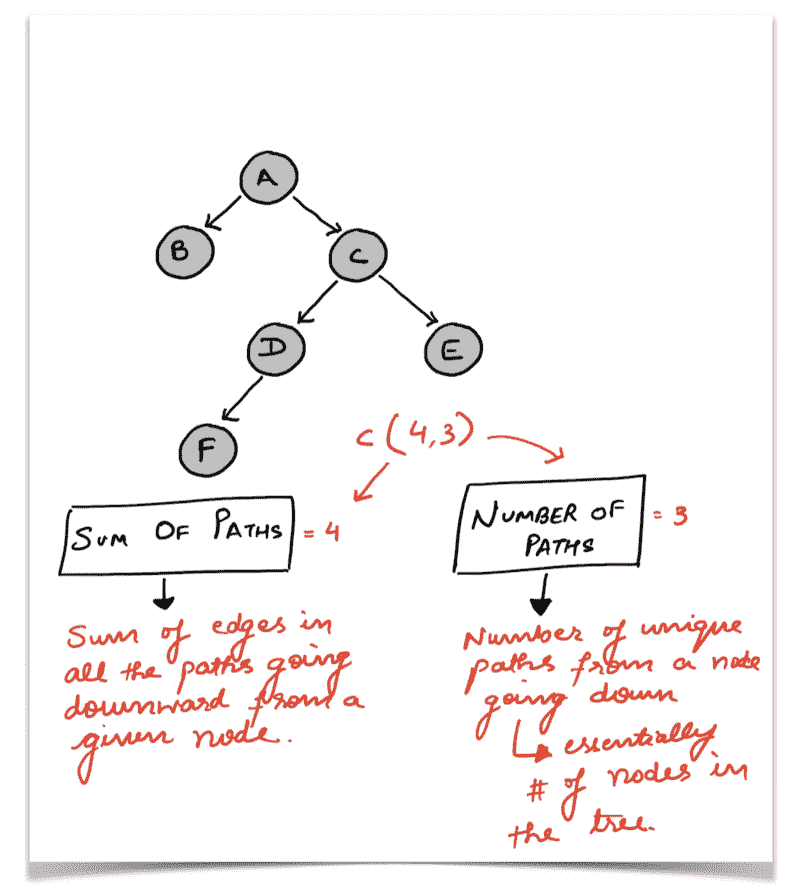 A
B
C
D
E
F
c (4,3)
SUM OF PATHS = 4
NUMBER OF
PATHS
= 3
Sum of edges in
all the paths going
downward from a
given node.
Number of unique
paths from a node
going down
essentially
# of nodes in
the tree.